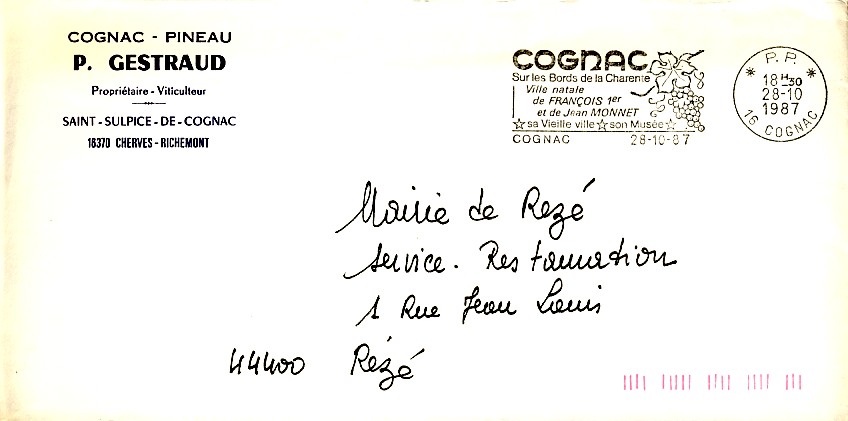 COGNAC - PINEAU
P. GESTRAUD
Propriétaire - Viticulteur
SAINT - SULPICE - DE - COGNAC
16370 CHERVES - RICHEMONT
COGNAC
Sur les Bords de la Charente
Ville natale
de FRANÇOIS 1er
et de Jean MONNET
☆ sa Vieille ville ☆ son Musée ☆
COGNAC 28-10-87
* P.P. *
18H30
28-10
1987
16 COGNAC
Mairie de Rezé
Service. Restauration
1 Rue Jean Louis
44400 Rézé